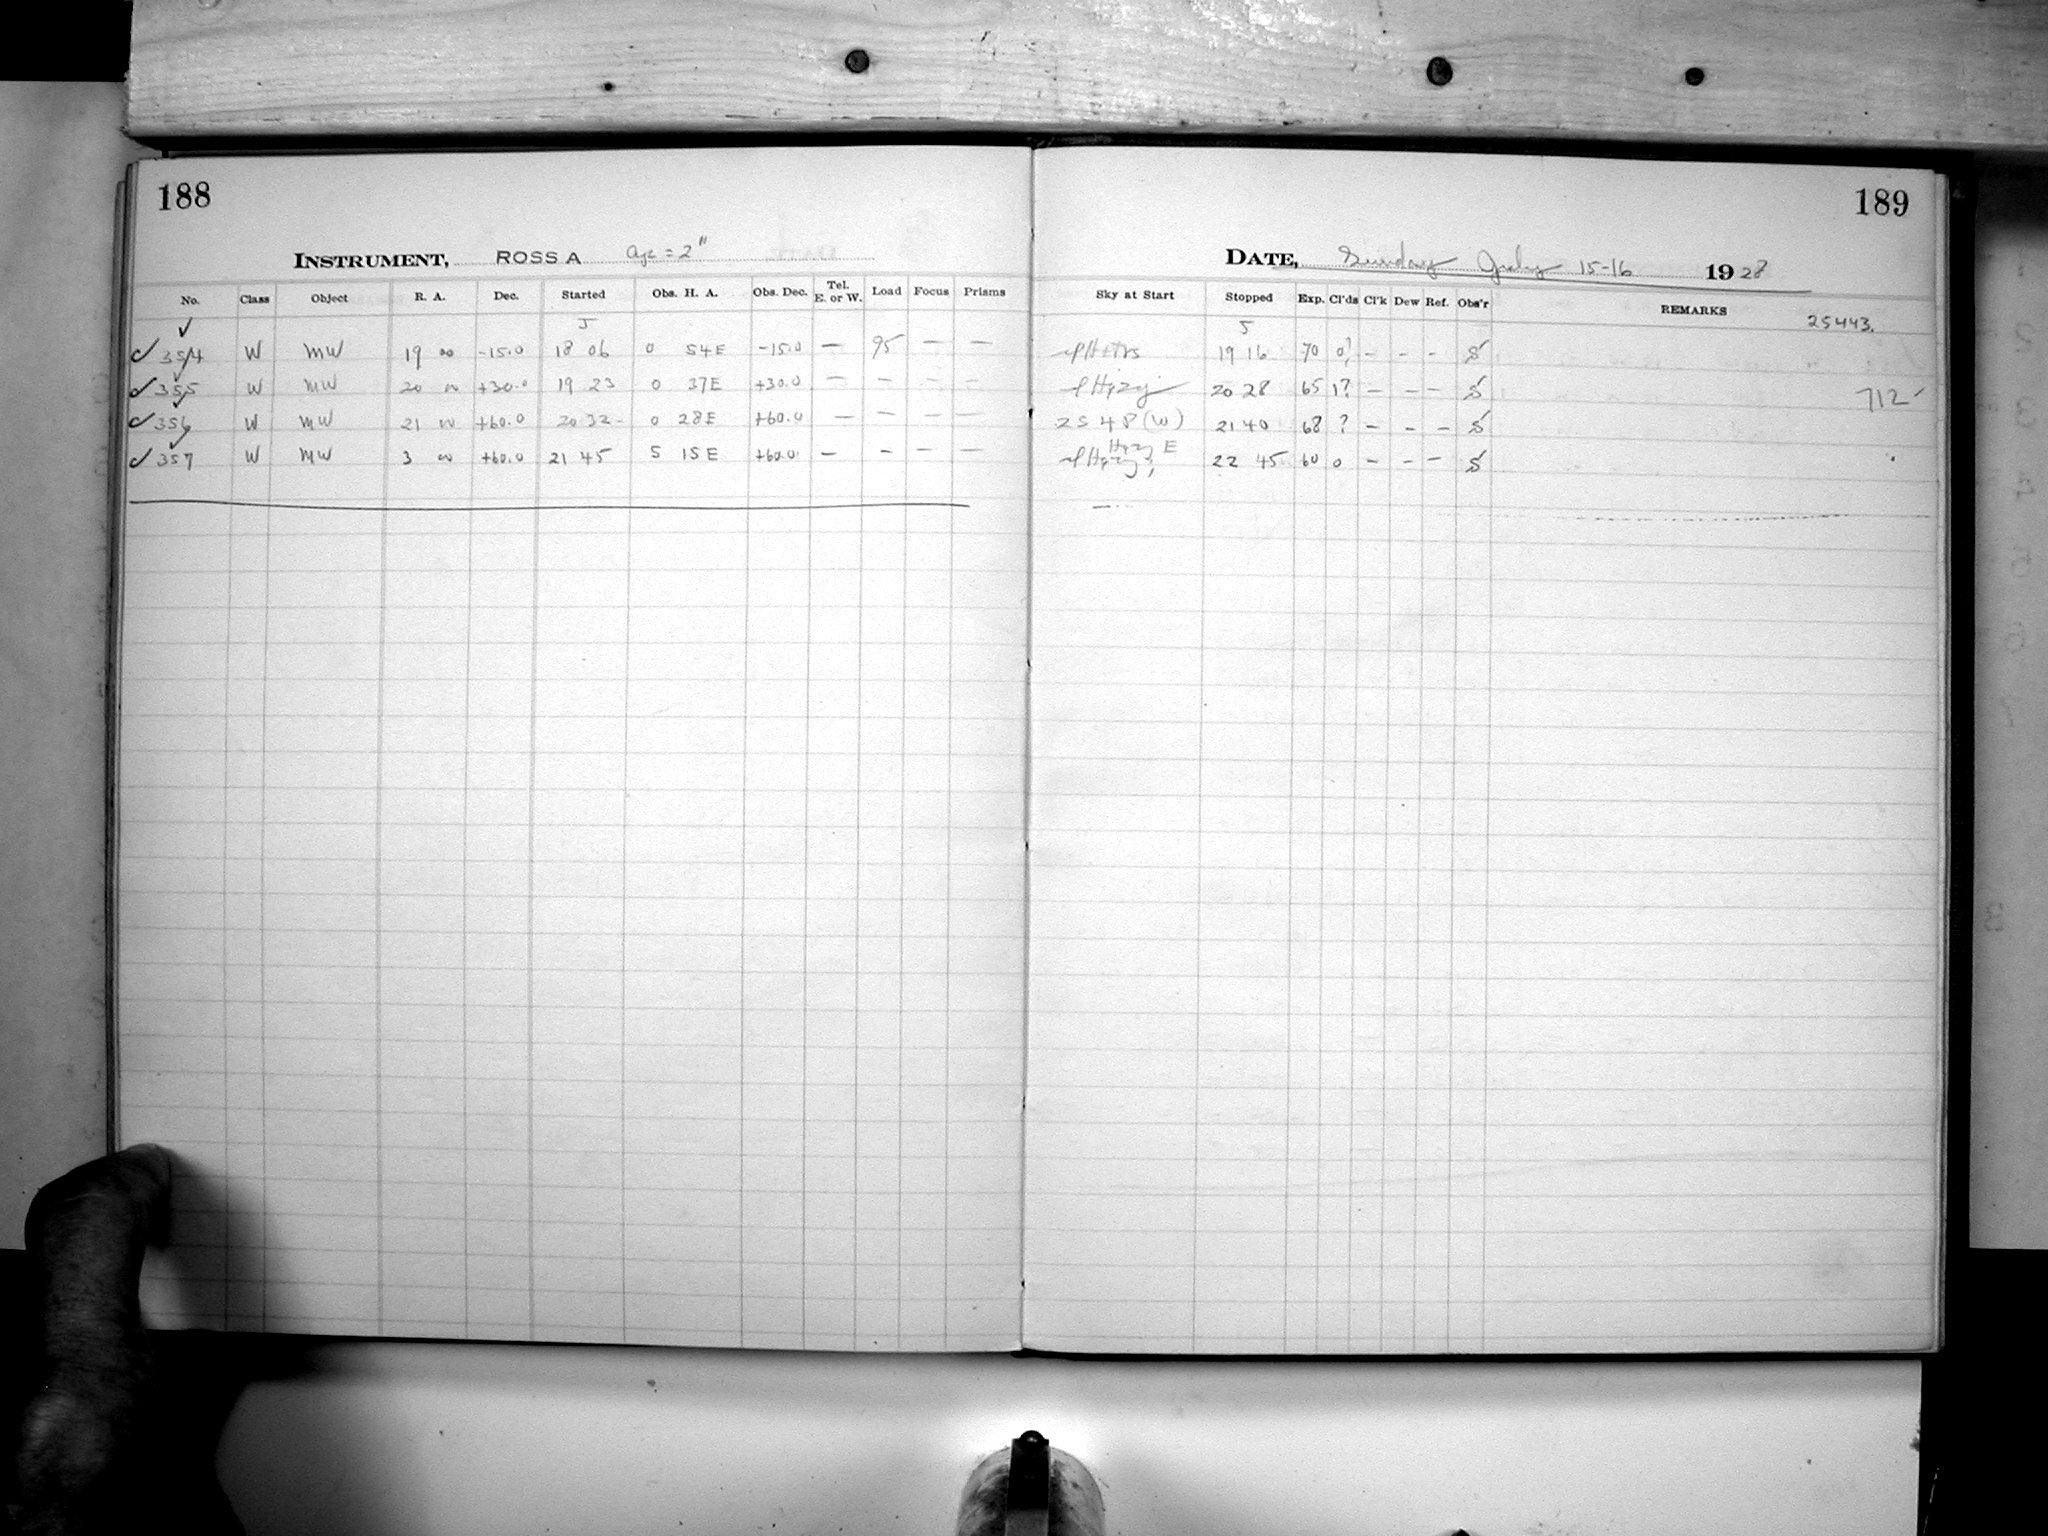 188
INSTRUMENT, ROSS A Ap = 2"
No. Class Object R. A. Dec. Started Obs. H. A. Obs. Dec. Tel. E. or W. Load Focus Prisms
354 W MW 19 00 -15.0 18 06 0 54E -15.0 — 95 — —
355 W MW 20 00 +30.0 19 23 0 37E +30.0 — — — —
356 W MW 21 00 +60.0 20 32 0 28E +60.0 — — — —
357 W MW 3 00 +60.0 21 45 5 15E +60.0 — — — —
189
DATE, Sunday July 15-16 1928
Sky at Start Stopped Exp. Cl'ds Cl'k Dew Ref. Obs'r REMARKS
25443.
19 16 70 0? — — —
Hazy 20 28 65 1? — — —
712
2548 (W) 21 40 68 ? — — —
Hazy E
Hazy; 22 45 60 0 — — —